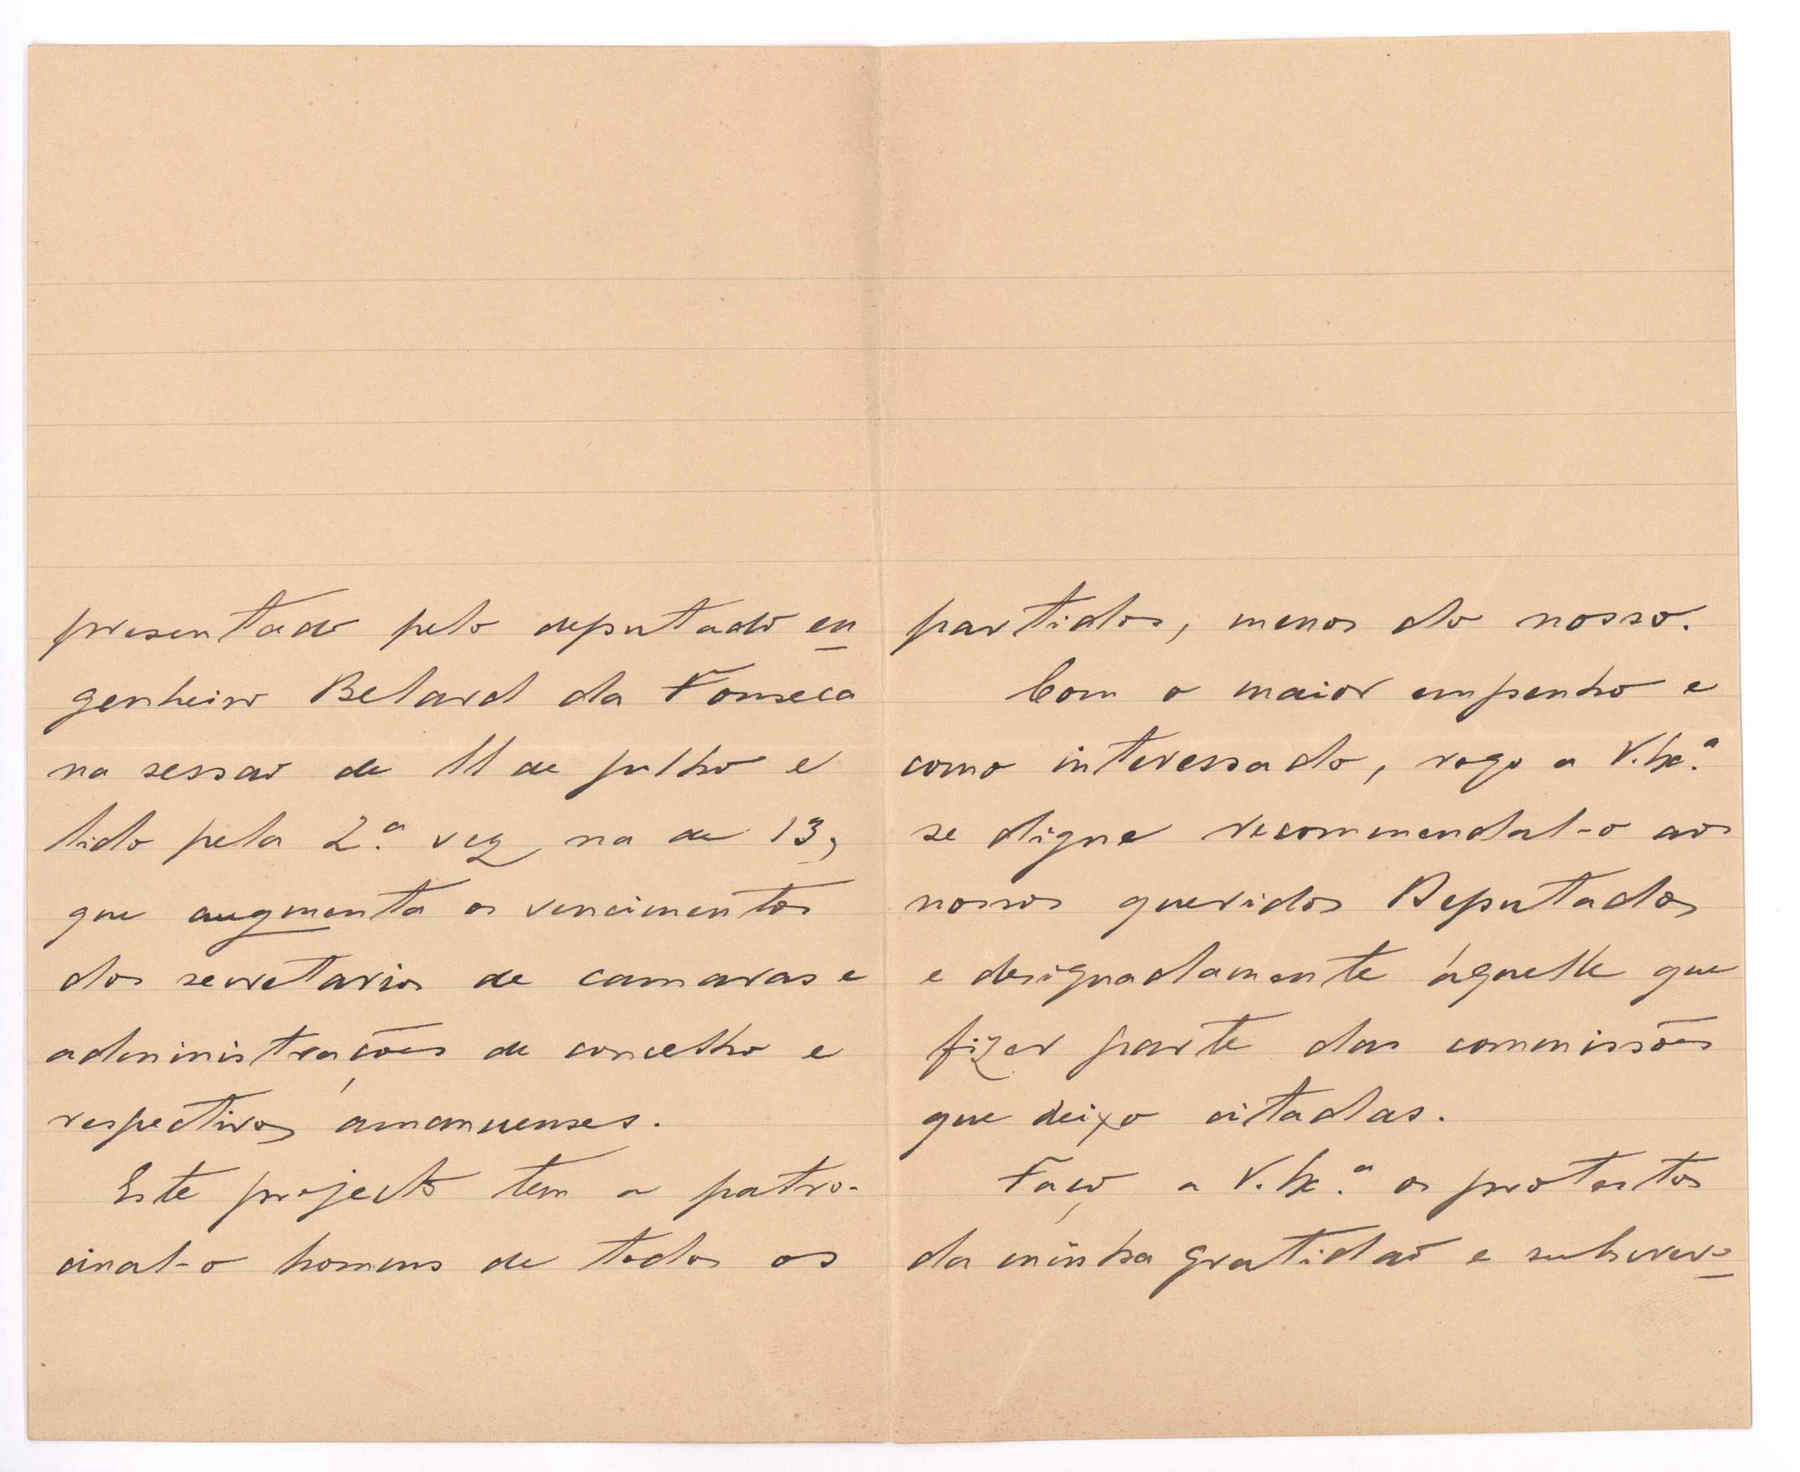 presentado pelo deputado en
genheiro Belard da Fonseca
na sessão de 11 de julho e
lido pela 2.ª vez na de 13,
que augmenta os vencimentos
dos secretarios de camaras e
administrações de concelho e
respectivos amanuenses.
Este projecto tem a patro-
cinal-o homens de todos os
partidos, menos do nosso.
Com o maior empenho e
como interessado, rogo a V. Ex.ª
se digne recommendal-o aos
nossos queridos Deputados
e designadamente áquelle que
fizer parte das commissões
que deixo citadas.
Faço a V. Ex.ª os protestos
da minha gratidão e subscrevo